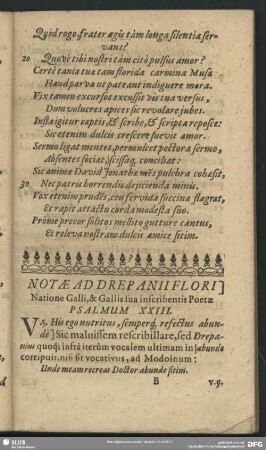 Quid rogo, frater agis tàm longa silentia ser-
vans?
20 Quove tibi nostri tàm citò pulsus amor?
Certè tanta tua tam florida carmina Musa
Haud parva ut pateant indiguere mora.
Vix tamen excursos excussit vis tua versus,
Dum volucres apices sic revolare jubes.
Insta igitur captis, & scribe, & scripta reposce:
Sic etenim dulcis crescere suevit amor.
Sermo ligat mentes, permulcet pectora sermo,
Absentes sociat, scissaq; conciliat:
Sic animæ David Jonathæ mēs pulchra cohæsit,
30 Nec patris horrendis dejicienda minis.
Vox etenim prudēs, ceu fervida succina flagrat,
Et rapit attactu corda modesta suo.
Prome precor solitos mellito gutture cantus,
Et releva nostram dulcis amice sitim.
NOTÆ AD DREPANII FLORI]
Natione Galli, & Gallis sua inscribentis Poetæ
PSALMUM XXIII.
V. 5. His ego nutritus, semperq; refectus abun-
dè] Sic maluissem rescribillare, sed Drepa-
nius quoq; infrà iterùm vocalem ultimam in abunde
corripuit, nisi sit vocativus, ad Modoinum:
Unde meam recreas Doctor abunde sitim.
B v. 9.
SLUB
DFG